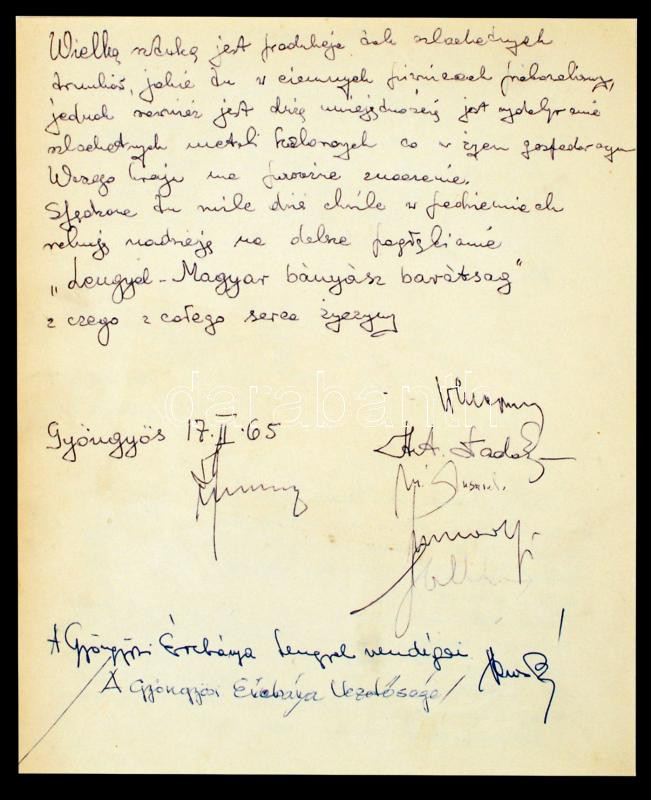 Wielką sztuką jest produkcja tak szlachetnych
trunków, jakie tu w ciemnych piwnicach próbowaliśmy,
jednak również jest dużą umiejętnością jest wydobywanie
szlachetnych metali kolorowych co w życiu gospodarczym
Waszego kraju ma poważne znaczenie.
Spędzone tu miłe dziś chwile w podziemiach
rokują nadzieję na dalsze pogłębianie
"Lengyel-Magyar bányász barátság"
z czego z całego serca życzymy
darabanth
Gyöngyös 17.II.65
A Gyöngyösi Ércbánya Lengyel vendégei
A Gyöngyösi Ércbánya Vezetősége